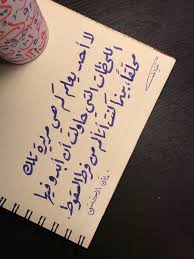 لا أحد يعلم كم هي مريرة تلك
اللحظات التي حاولت أن أبدو فيها
محلقاً، بينما كنت أتألم من فرط السقوط.